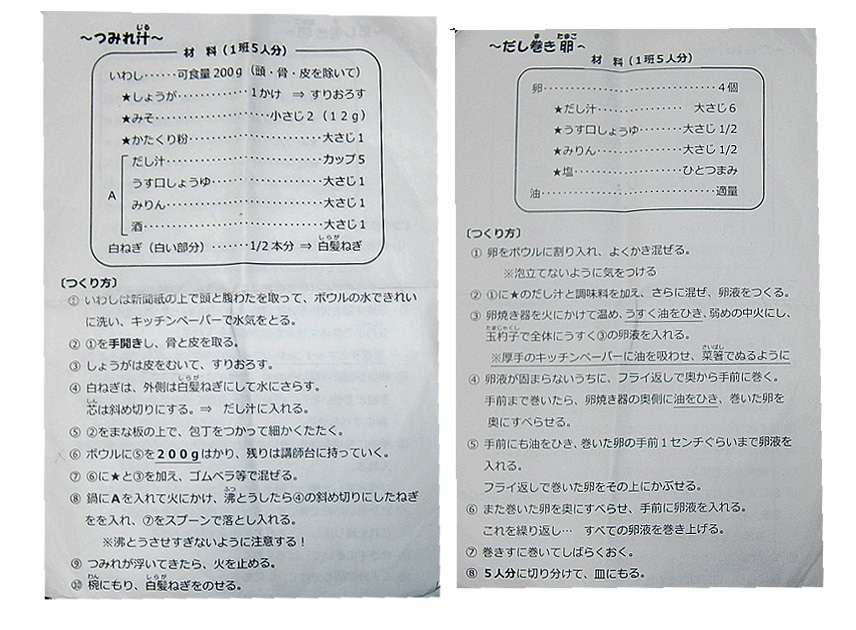 ～つみれ汁～
材 料（1班5人分）
いわし‥‥‥可食量200g（頭・骨・皮を除いて）
★しょうが‥‥‥‥‥‥1かけ ⇒ すりおろす
★みそ‥‥‥‥‥‥‥‥小さじ2（12g）
★かたくり粉‥‥‥‥‥‥‥‥‥大さじ1
だし汁‥‥‥‥‥‥‥‥‥‥カップ5
うす口しょうゆ‥‥‥‥‥‥‥大さじ1
A
みりん‥‥‥‥‥‥‥‥‥‥大さじ1
酒‥‥‥‥‥‥‥‥‥‥‥大さじ1
白ねぎ（白い部分）‥‥‥1/2本分 ⇒ 白髪ねぎ
〔つくり方〕
① いわしは新聞紙の上で頭と腹わたを取って、ボウルの水できれい
に洗い、キッチンペーパーで水気をとる。
② ①を手開きし、骨と皮を取る。
③ しょうがは皮をむいて、すりおろす。
④ 白ねぎは、外側は白髪ねぎにして水にさらす。
芯は斜め切りにする。⇒ だし汁に入れる。
⑤ ②をまな板の上で、包丁をつかって細かくたたく。
⑥ ボウルに⑤を200gはかり、残りは講師台に持っていく。
⑦ ⑥に★と③を加え、ゴムベラ等で混ぜる。
⑧ 鍋にAを入れて火にかけ、沸とうしたら④の斜め切りにしたねぎ
をを入れ、⑦をスプーンで落とし入れる。
※沸とうさせすぎないように注意する！
⑨ つみれが浮いてきたら、火を止める。
⑩ 椀にもり、白髪ねぎをのせる。
～だし巻き卵～
材 料（1班5人分）
卵‥‥‥‥‥‥‥‥‥‥‥‥‥4個
★だし汁‥‥‥‥‥‥‥‥ 大さじ6
★うす口しょうゆ‥‥‥‥大さじ1/2
★みりん‥‥‥‥‥‥‥‥大さじ1/2
★塩‥‥‥‥‥‥‥‥‥‥ひとつまみ
油‥‥‥‥‥‥‥‥‥‥‥‥‥適量
〔つくり方〕
① 卵をボウルに割り入れ、よくかき混ぜる。
※泡立てないように気をつける
② ①に★のだし汁と調味料を加え、さらに混ぜ、卵液をつくる。
③ 卵焼き器を火にかけて温め、うすく油をひき、弱めの中火にし、
玉杓子で全体にうすく③の卵液を入れる。
※厚手のキッチンペーパーに油を吸わせ、菜箸でぬるように
④ 卵液が固まらないうちに、フライ返しで奥から手前に巻く。
手前まで巻いたら、卵焼き器の奥側に油をひき、巻いた卵を
奥にすべらせる。
⑤ 手前にも油をひき、巻いた卵の手前1センチぐらいまで卵液を
入れる。
フライ返しで巻いた卵をその上にかぶせる。
⑥ また巻いた卵を奥にすべらせ、手前に卵液を入れる。
これを繰り返し… すべての卵液を巻き上げる。
⑦ 巻きすに巻いてしばらくおく。
⑧ 5人分に切り分けて、皿にもる。